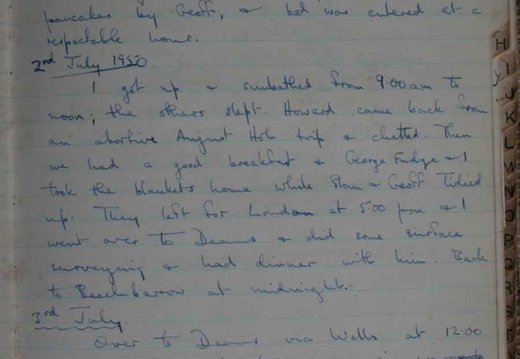 pancakes by Geoff, & bed was entered at a
respectable hour.
2nd July 1950
I got up & sunbathed from 9.00 am to
noon; the others slept. Howard came back from
an abortive August Hole trip & chatted. Then
we had a good breakfast & George Fudge & I
took the blankets home while Stan & Geoff tidied
up. They left for London at 5.00 pm & I
went over to Deans & did some surface
surveying & had dinner with him. Back
to Beechbarrow at midnight.
3rd July.
Over to Deans via Wells at 12.00
H
I
J
K
L
M
N
O
P
Q
R
S